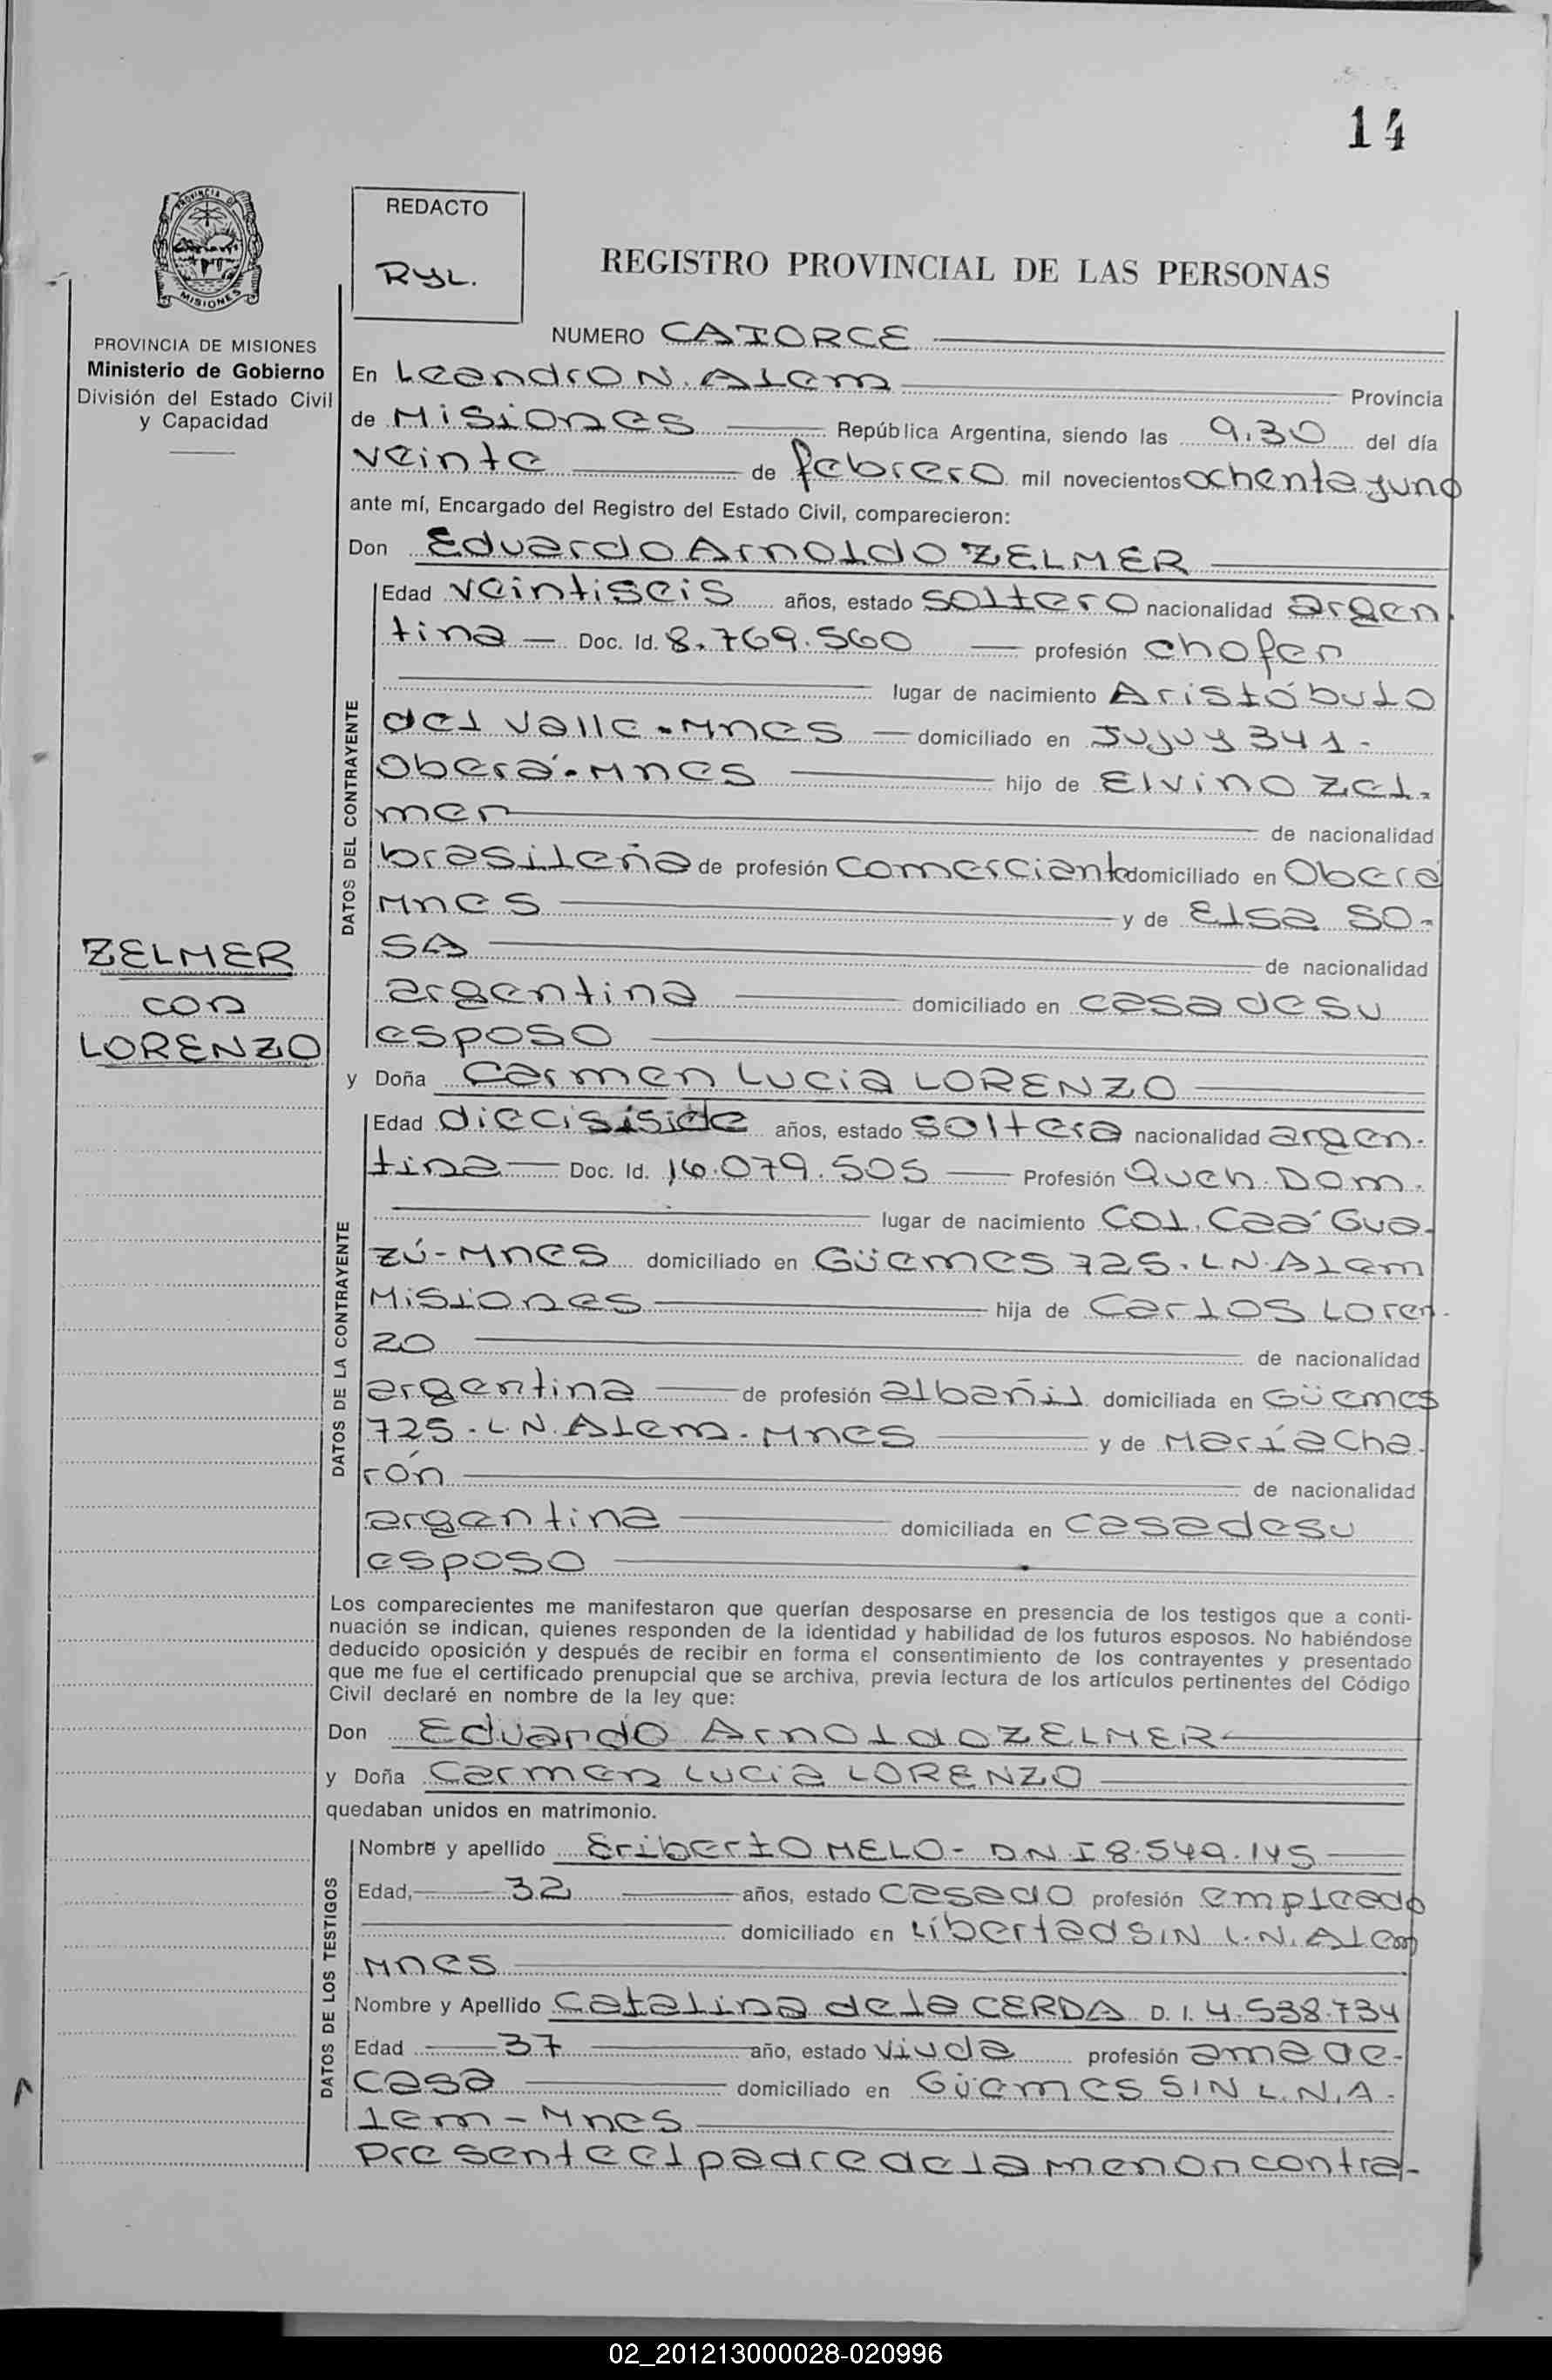 14
PROVINCIA DE
MISIONES
PROVINCIA DE MISIONES
Ministerio de Gobierno
División del Estado Civil
y Capacidad
REDACTO
RYL.
REGISTRO PROVINCIAL DE LAS PERSONAS
NUMERO CATORCE
En Leandro N. Alem Provincia
de Misiones República Argentina, siendo las 9,30 del día
veinte de febrero mil novecientos ochenta y uno
ante mí, Encargado del Registro del Estado Civil, comparecieron:
Don Eduardo Arnoldo ZELMER
DATOS DEL CONTRAYENTE
Edad veintiseis años, estado soltero nacionalidad argen-
tina Doc. Id. 8.769.560 profesión chofer
lugar de nacimiento Aristóbulo
del Valle - Mnes domiciliado en Jujuy 341 -
Oberá - Mnes hijo de Elvino Zel-
mer de nacionalidad
brasileña de profesión comerciante domiciliado en Oberá
Mnes y de Elsa SO-
SA de nacionalidad
argentina domiciliado en casa de su
esposo
ZELMER
con
LORENZO
y Doña Carmen Lucia LORENZO
DATOS DE LA CONTRAYENTE
Edad diecisiside años, estado soltera nacionalidad argen-
tina Doc. Id. 16.079.505 Profesión Queh. Dom.
lugar de nacimiento Col. Caá Gua-
zú - Mnes domiciliado en Güemes 725. L N. Alem
Misiones hija de Carlos Loren-
zo de nacionalidad
argentina de profesión albañil domiciliada en Güemes
725 - L. N. Alem - Mnes y de María Cha-
rón de nacionalidad
argentina domiciliada en casa de su
esposo
Los comparecientes me manifestaron que querían desposarse en presencia de los testigos que a conti-
nuación se indican, quienes responden de la identidad y habilidad de los futuros esposos. No habiéndose
deducido oposición y después de recibir en forma el consentimiento de los contrayentes y presentado
que me fue el certificado prenupcial que se archiva, previa lectura de los artículos pertinentes del Código
Civil declaré en nombre de la ley que:
Don Eduardo Arnoldo ZELMER
y Doña Carmen Lucia LORENZO
quedaban unidos en matrimonio.
DATOS DE LOS TESTIGOS
Nombre y apellido Eriberto MELO - DNI 8.549.145
Edad, 32 años, estado casado profesión empleado
domiciliado en Libertad S/N L.N. Alem
Mnes
Nombre y Apellido Catalina de la CERDA D. I. 4.538.734
Edad 37 año, estado viuda profesión ama de
casa domiciliado en Güemes S/N L.N.A-
lem - Mnes
Presente el padre de la menor contra-
02_201213000028-020996